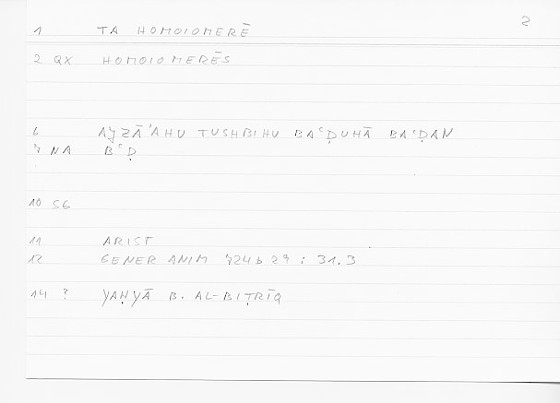 2
1 TA HOMOIOMERĒ
2 QX HOMOIOMERĒS
6 AJZĀʾAHU TUSHBIHU BAʿḌUHĀ BAʿḌAN
7 NA BʿḌ
10 SG
11 ARIST
12 GENER ANIM 724b29 : 31.3
14 ? YAḤYĀ B. AL-BIṬRĪQ